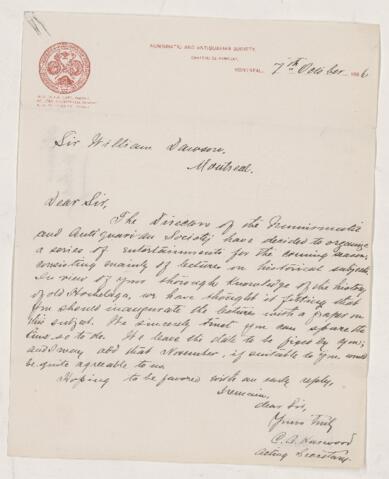 NUMISMATIC AND ANTIQUARIAN SOCIETY.
MONTREAL, 7th October 1896
Sir William Dawson,
Montreal.
Dear Sir,
The Directors of the Numismatic
and Antiquarian Society have decided to organize
a series of entertainments for the coming season,
consisting mainly of lectures on historical subjects.
In view of your thorough knowledge of the history
of old Hochelaga, we have thought it fitting that
you should the lectures with a paper on
this subject. We sincerely trust you can spare the
time so to do. We leave the date to be fixed by you;
and I may add that November, if suitable to you would
be quite agreeable to us.
Hoping to be favored with an early reply,
I remain,
dear Sir,
Yours truly
C. A. Harwood
Acting Secretary.